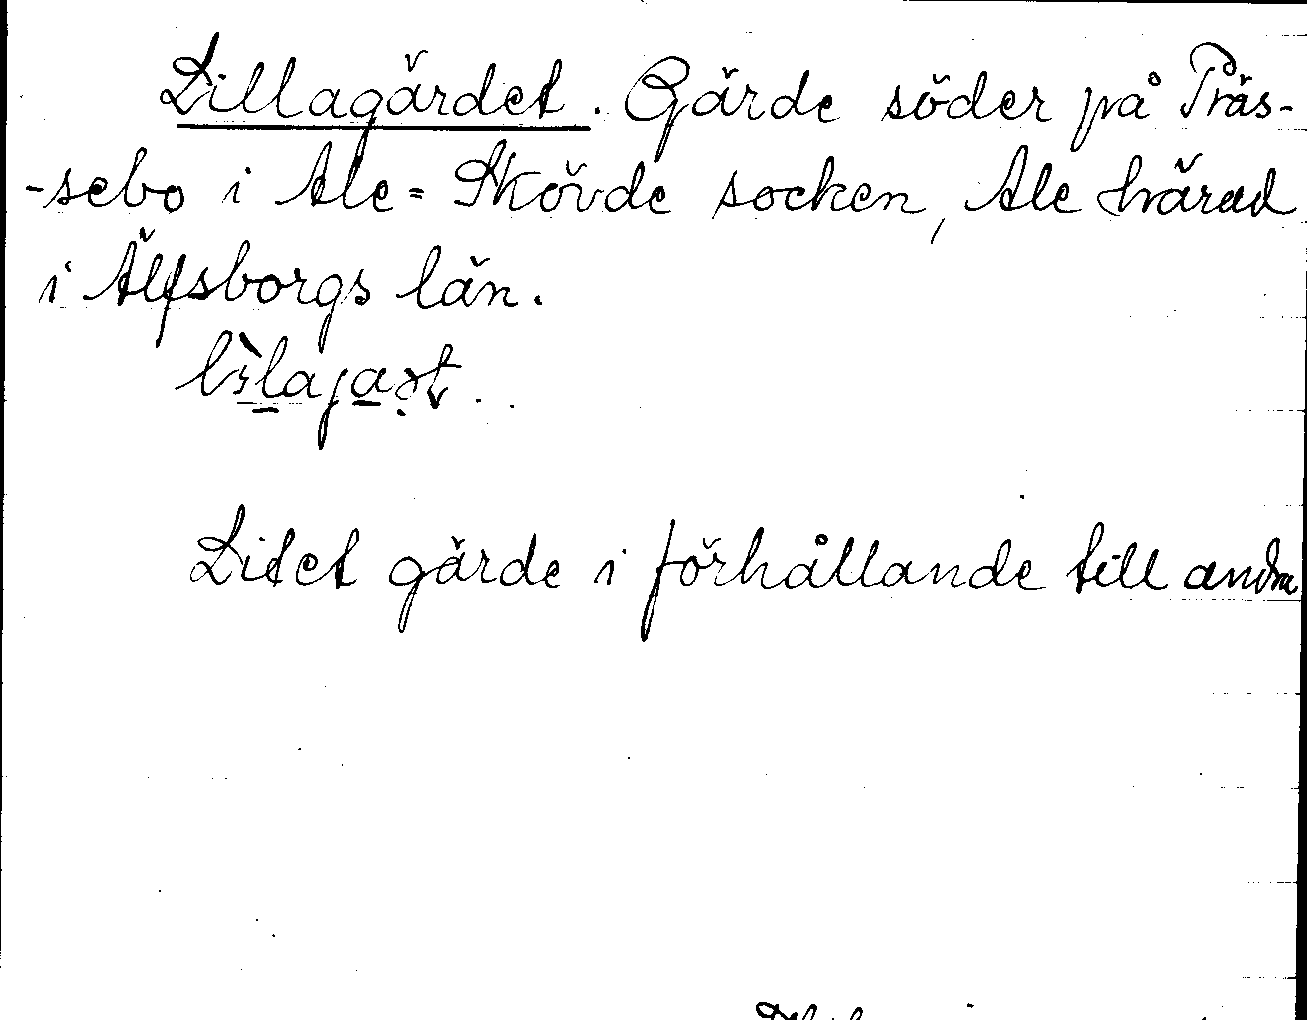 Lillagärdet. Gärde söder på Präs-
-sebo i Ale=Skövde socken, Ale härad
i Älfsborgs län.
Litet gärde i förhållande till andra